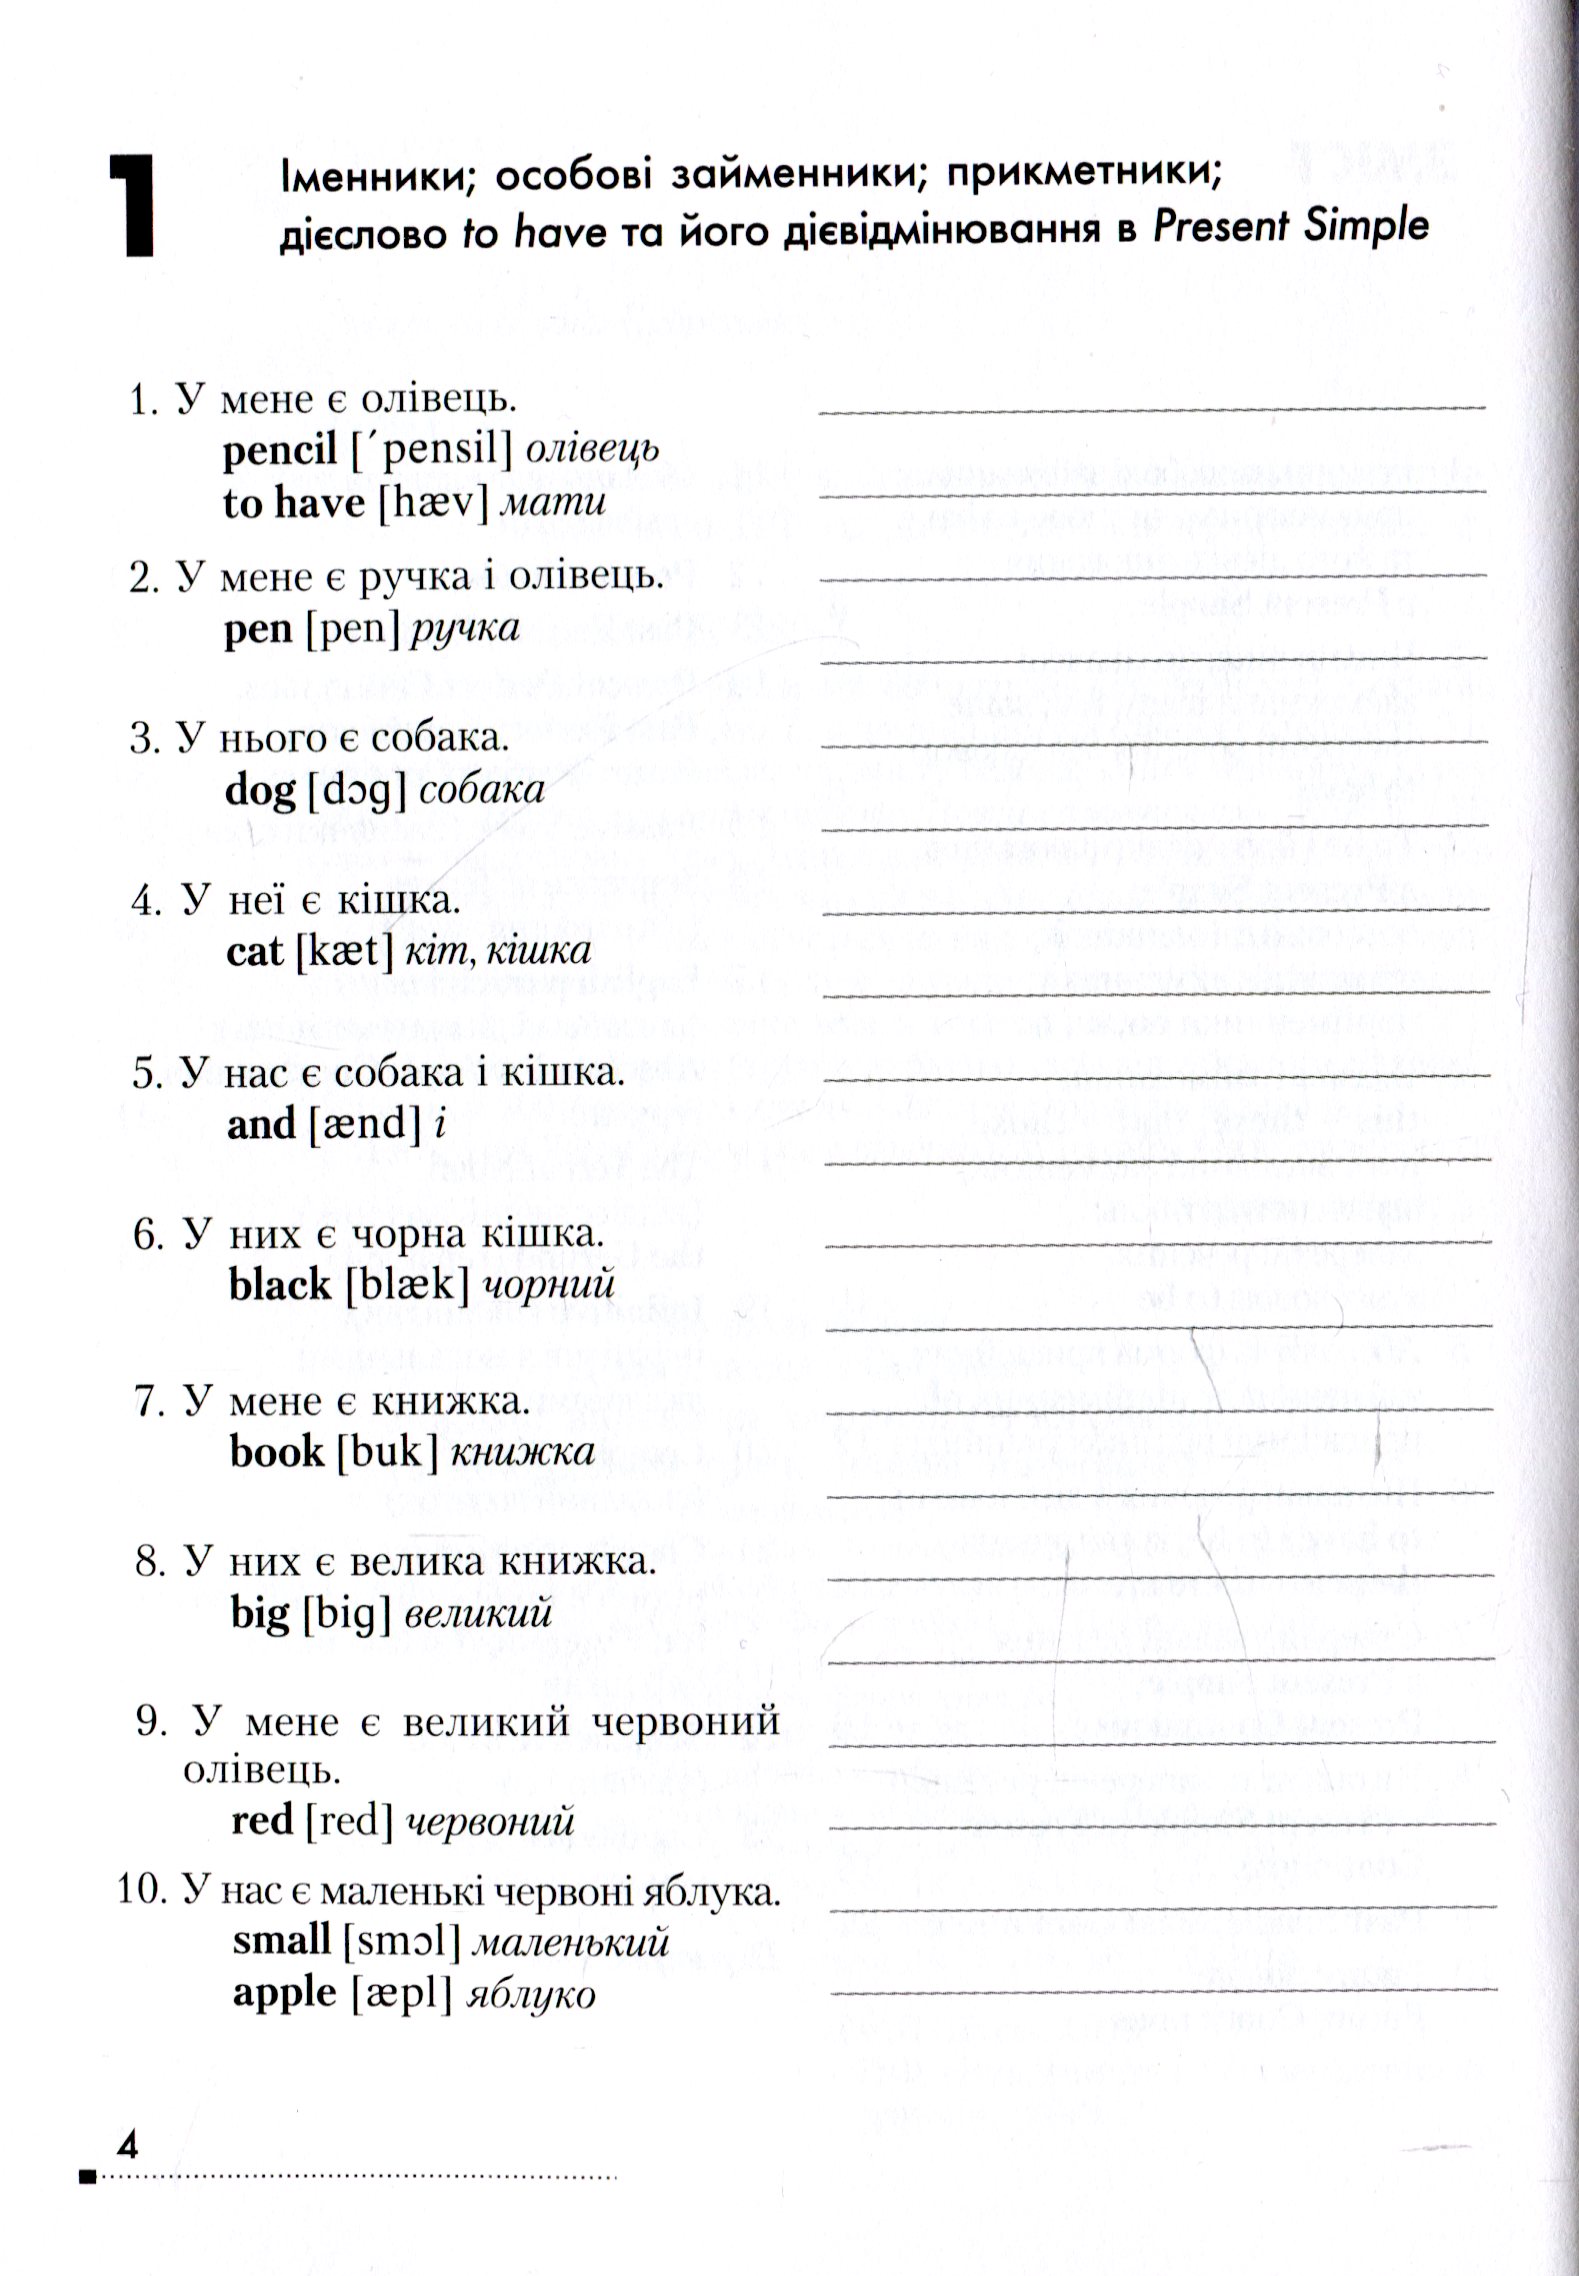 1
Іменники; особові займенники; прикметники;
дієслово to have та його дієвідмінювання в Present Simple
1. У мене є олівець.
pencil [ˊpensil] олівець
to have [hæv] мати
2. У мене є ручка і олівець.
pen [pen] ручка
3. У нього є собака.
dog [dɔg] собака
4. У неї є кішка.
cat [kæt] кіт, кішка
5. У нас є собака і кішка.
and [ænd] і
6. У них є чорна кішка.
black [blæk] чорний
7. У мене є книжка.
book [buk] книжка
8. У них є велика книжка.
big [big] великий
9. У мене є великий червоний
олівець.
red [red] червоний
10. У нас є маленькі червоні яблука.
small [smɔl] маленький
apple [æpl] яблуко
4